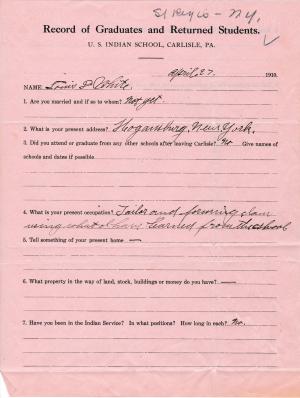 St Regis - N.Y.
Record of Graduates and Returned Students.
U. S. INDIAN SCHOOL, CARLISLE, PA.
April 27. 1910.
NAME, Louis P. White.
1. Are you married and if so to whom? Not yet.
2. What is your present address? Hogansburg, New York.
3. Did you attend or graduate from any other schools after leaving Carlisle? No Give names of
schools and dates if possible.
4. What is your present occupation? Tailor and farming I am
using what I have learned from this school
5. Tell something of your present home —
6. What property in the way of land, stock, buildings or money do you have? —
7. Have you been in the Indian Service? In what positions? How long in each? No.